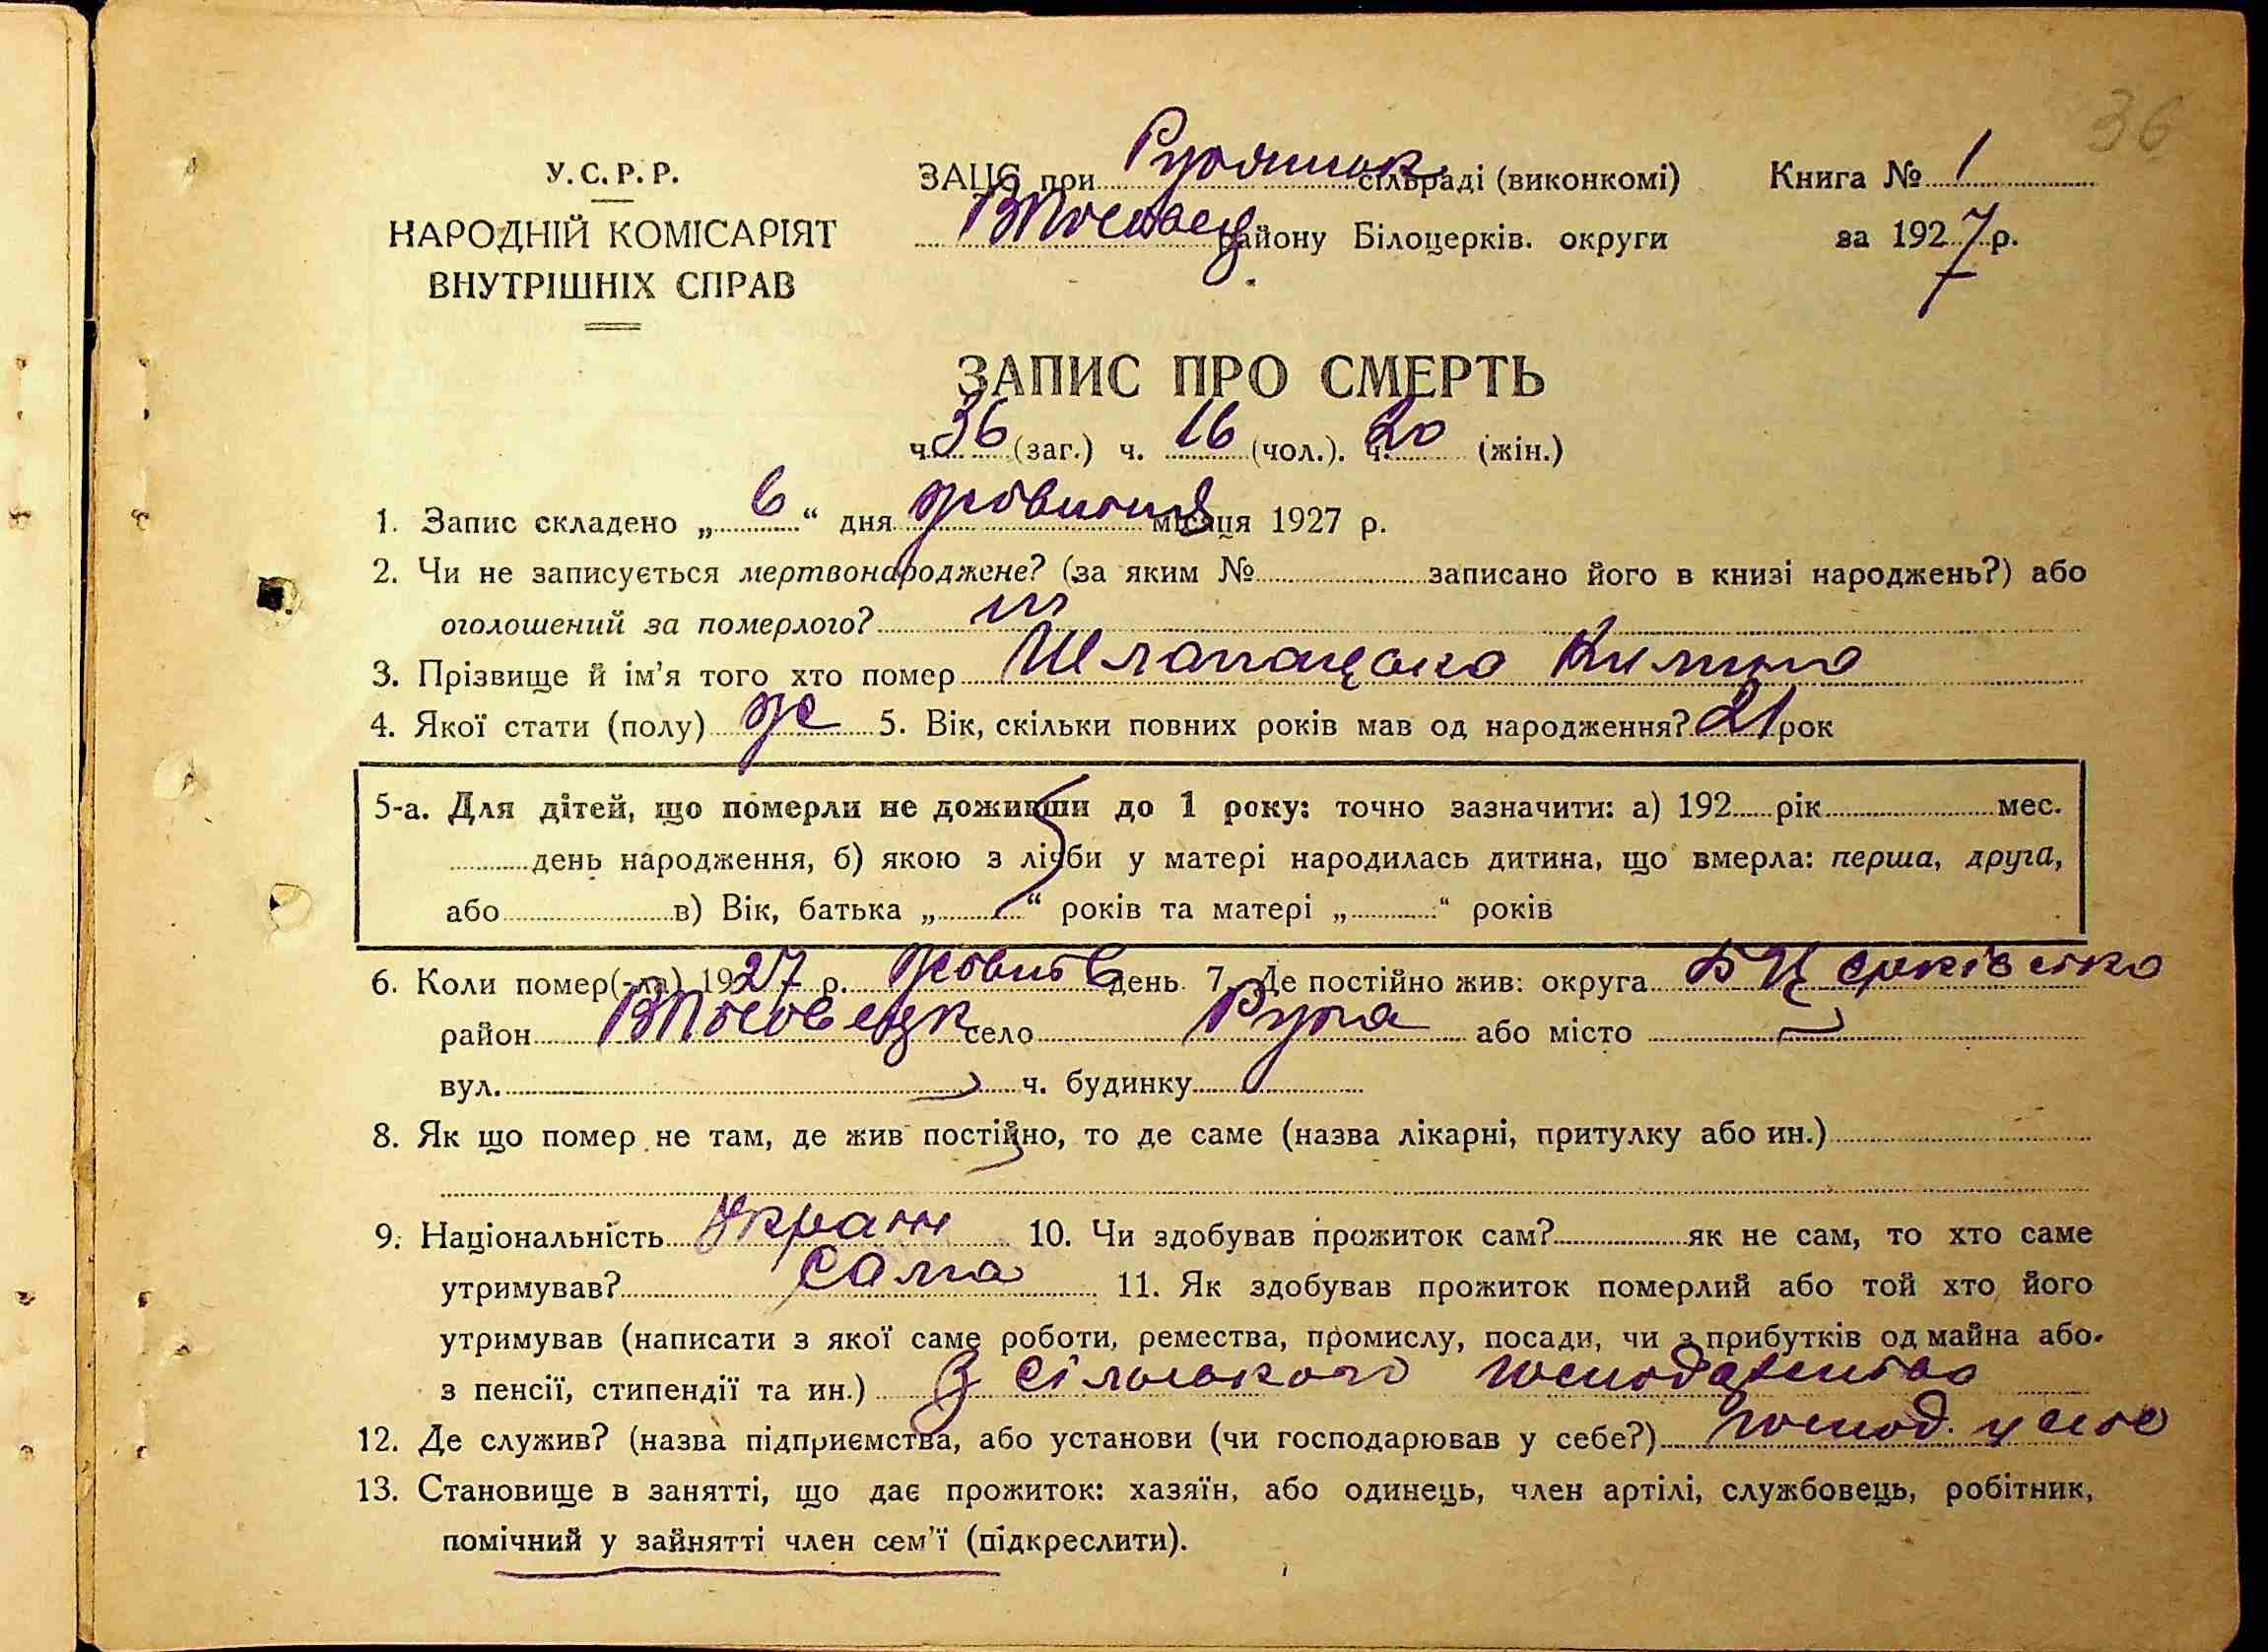 36
У.С.Р.Р.
НАРОДНІЙ КОМІСАРІЯТ
ВНУТРІШНІХ СПРАВ
ЗАЦС при Рудянськ сільраді (виконкомі)
району Білоцерків. округи
Книга № 1
за 1927 р.
ЗАПИС ПРО СМЕРТЬ
ч. 36 (заг.) ч. 16 (чол.). ч. 20 (жін.)
1. Запис складено „ 6 “ дня жовтня місяця 1927 р.
2. Чи не записується мертвонароджене? (за яким № записано його в книзі народжень?) або
оголошений за померлого? ні
3. Прізвище й ім’я того хто помер
4. Якої стати (полу) ж 5. Вік, скільки повних років мав од народження? 21 рок
5-а. Для дітей, що померли не доживши до 1 року: точно зазначити: а) 192 рік мес.
день народження, б) якою з лічби у матері народилась дитина, що вмерла: перша, друга,
або в) Вік, батька „ “ років та матері „ “ років
6. Коли помер(-ла) 1927 р. жовтн 6 день 7. Де постійно жив: округа БЦерківська
район село Руда або місто
вул. ч. будинку
8. Як що помер не там, де жив постійно, то де саме (назва лікарні, притулку або ин.)
9. Національність Україн 10. Чи здобував прожиток сам? як не сам, то хто саме
утримував? сама 11. Як здобував прожиток померлий або той хто його
утримував (написати з якої саме роботи, ремества, промислу, посади, чи з прибутків од майна або
з пенсії, стипендії та ин.) З сільського господарства
12. Де служив? (назва підприємства, або установи (чи господарював у себе?) господ. у себе
13. Становище в занятті, що дає прожиток: хазяїн, або одинець, член артілі, службовець, робітник,
помічний у зайнятті член сем’ї (підкреслити).